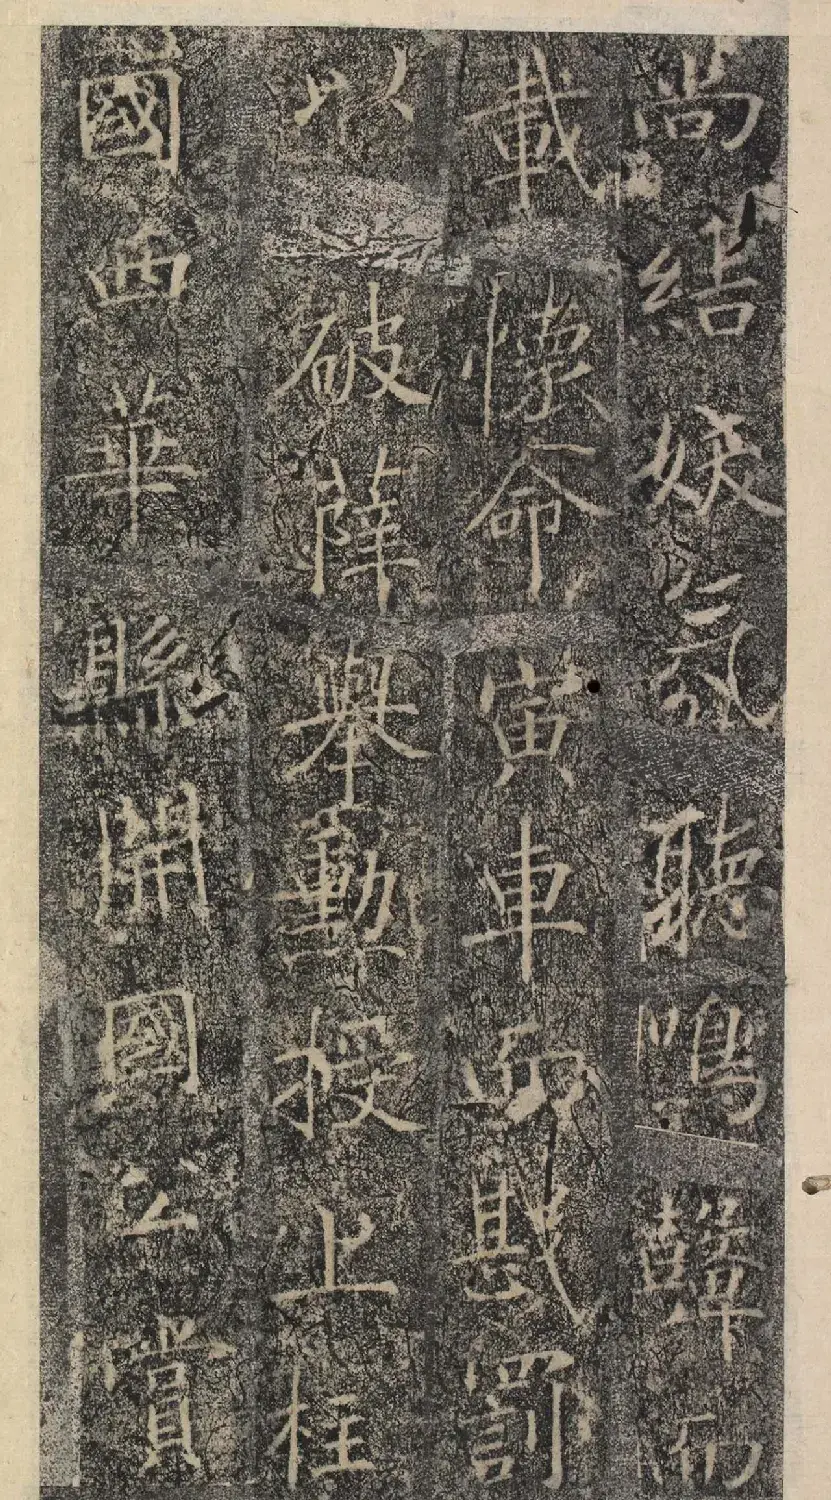 尚結妖氛聽鳴鼙而
載懷命寅車而戡罰
以破薛舉勳授上柱
國西華縣開國公賞